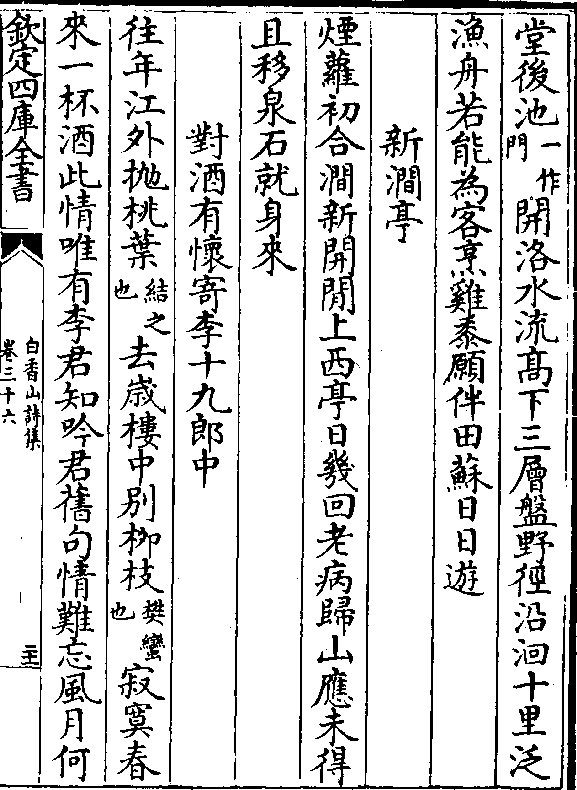 堂後池一作門開洛水流高下三層盤野徑沿洄十里泛
漁舟若能為客烹雞黍願伴田蘇日日遊
新澗亭
煙蘿初合澗新開閒上西亭日幾回老病歸山應未得
且移泉石就身來
對酒有懷寄李十九郎中
往年江外抛桃葉結之也去歲樓中别柳枝樊蠻也寂寞春
來一杯酒此情唯有李君知吟君舊句情難忘風月何
欽定四庫全書
白香山詩集
卷三十六
二十一